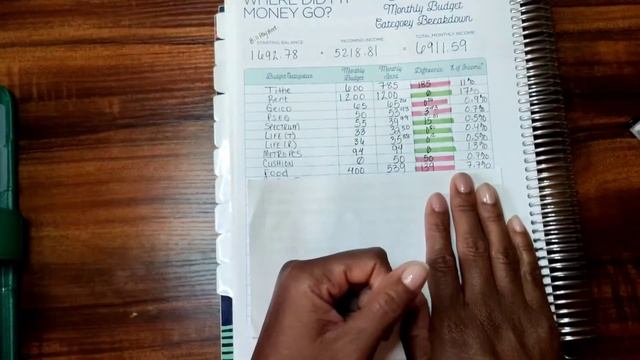 WHERE DID MY
MONEY GO?
Monthly Budget
Category Breakdown
STARTING BALANCE INCOMING INCOME TOTAL MONTHLY INCOME
1692.78 + 5218.81 = 6911.59
Budget Categories Monthly Budget Monthly Spent Difference % of Income
Tithe 600 785 185 11%
Rent 1200 1200 0 17%
Geico 65 65 0.9%
PSEG 50 53 0.7%
Spectrum 55 39 15 0.5%
Life (T) 33 0.4%
Life (R) 36 35 0.5%
Metropcs 94 94 0 1.3%
Cushion 0 50 50 0.7%
Food 400 539 139 7.7%